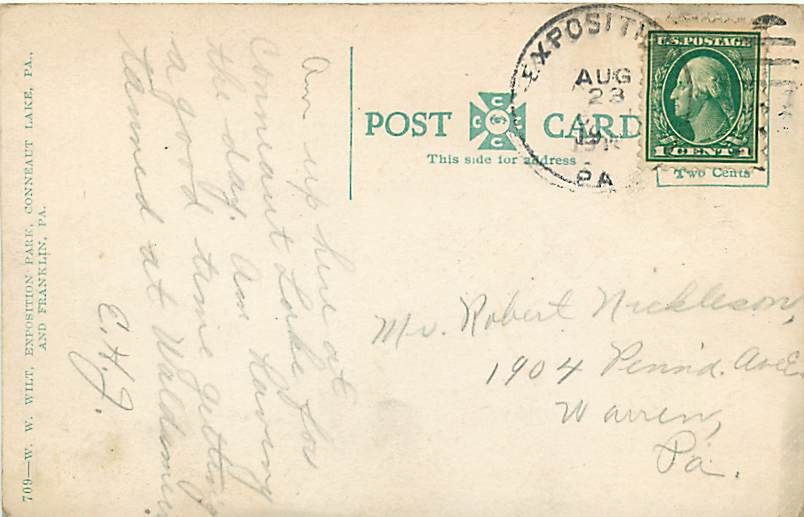 709—W. W. WILT, EXPOSITION PARK, CONNEAUT LAKE, PA.,
AND FRANKLIN, PA.
Am up here at
Conneaut Lake for
the day. Am having
a good time getting
tanned at Waldameer
E.H.J.
POST CARD
This side for address
EXPOSITI
AUG
23
PA
U.S. POSTAGE
1 CENT 1
Two Cents
Mr. Robert Nickleson,
1904 Penn'a. Ave.
Warren,
Pa.